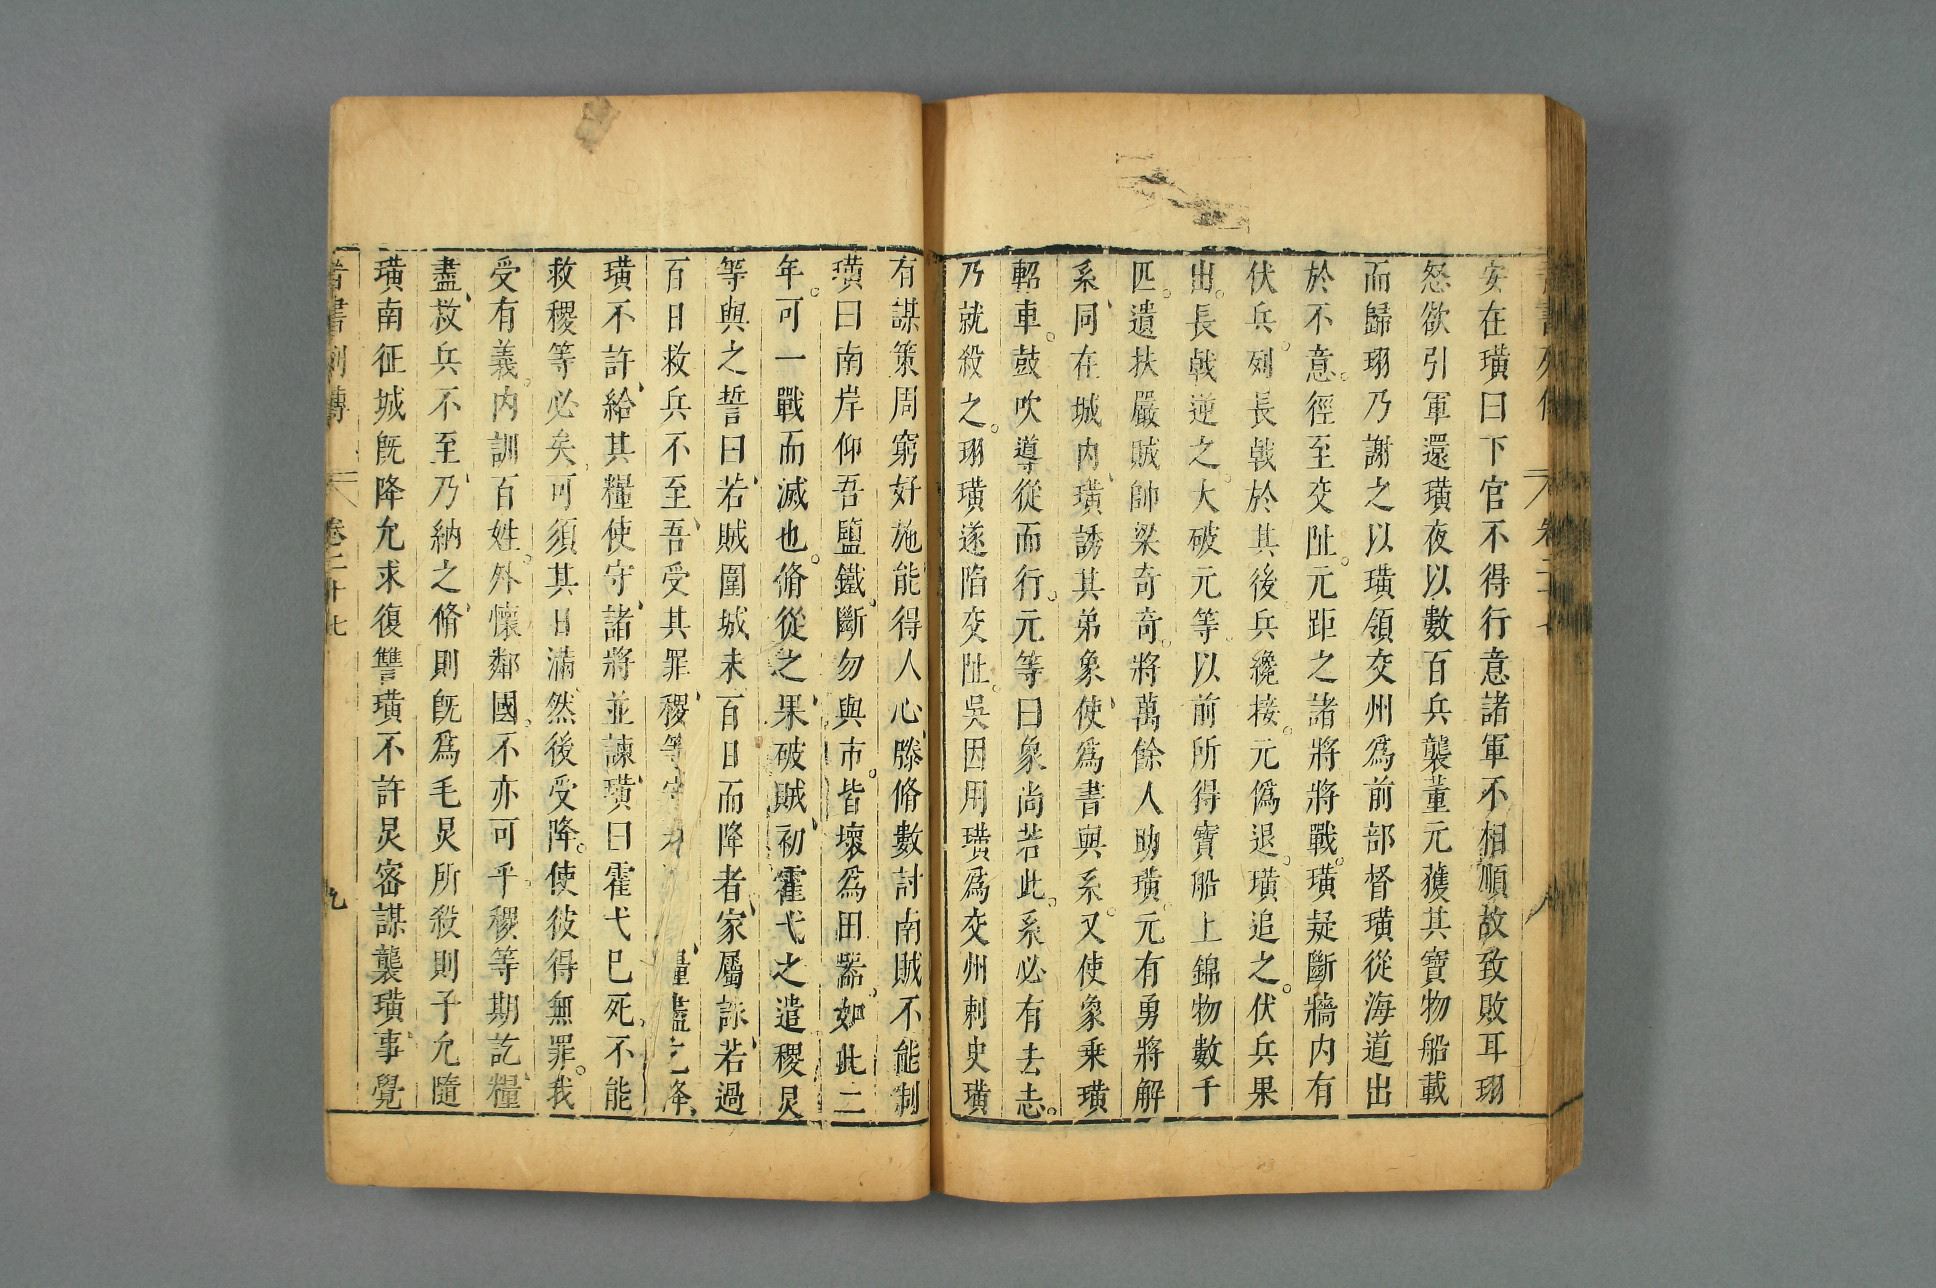 安在璜曰下官不得行意諸軍不相順故致敗耳珝
怒欲引軍還璜夜以數百兵襲董元獲其寶物船載
而歸珝乃謝之以璜領交州爲前部督璜從海道出
於不意。徑至交阯。元距之諸將將戰。璜疑斷牆內有
伏兵。列長戟於其後兵纔接。元僞退。璜追之。伏兵果
出。長戟逆之。大破元等。以前所得寶船上錦物數千
匹。遺扶嚴賊帥梁奇。奇將萬餘人助璜。元有勇將解
系、同在城內、璜誘其弟象、使爲書與系。又使象乘璜
軺車。鼓吹導從而行。元等曰象尚若此。系必有去志。
乃就殺之。珝璜遂陷交阯。吳因用璜爲交州刺史璜
有謀策周窮好施能得人心、滕脩數討南賊不能制
璜曰南岸仰吾鹽鐵。斷勿與市。皆壞爲田器。如此二
年。可一戰而滅也。脩從之、果破賊、初霍弋之遣稷炅
等與之誓曰、若賊圍城未百日而降者、家屬誅、若過
百日救兵不至、吾受其罪、稷等守未糧盡乞降、
璜不許、給其糧使守、諸將並諫、璜曰霍弋已死。不能
救稷等必矣、可須其日滿、然後受降。使彼得無罪。我
受有義。內訓百姓。外懷鄰國。不亦可乎。稷等期訖、糧
盡、救兵不至、乃納之、脩則既爲毛炅所殺則子允隨
璜南征城既降允求復讐璜不許炅密謀襲璜、事覺
晉書列傳 卷二十七 九